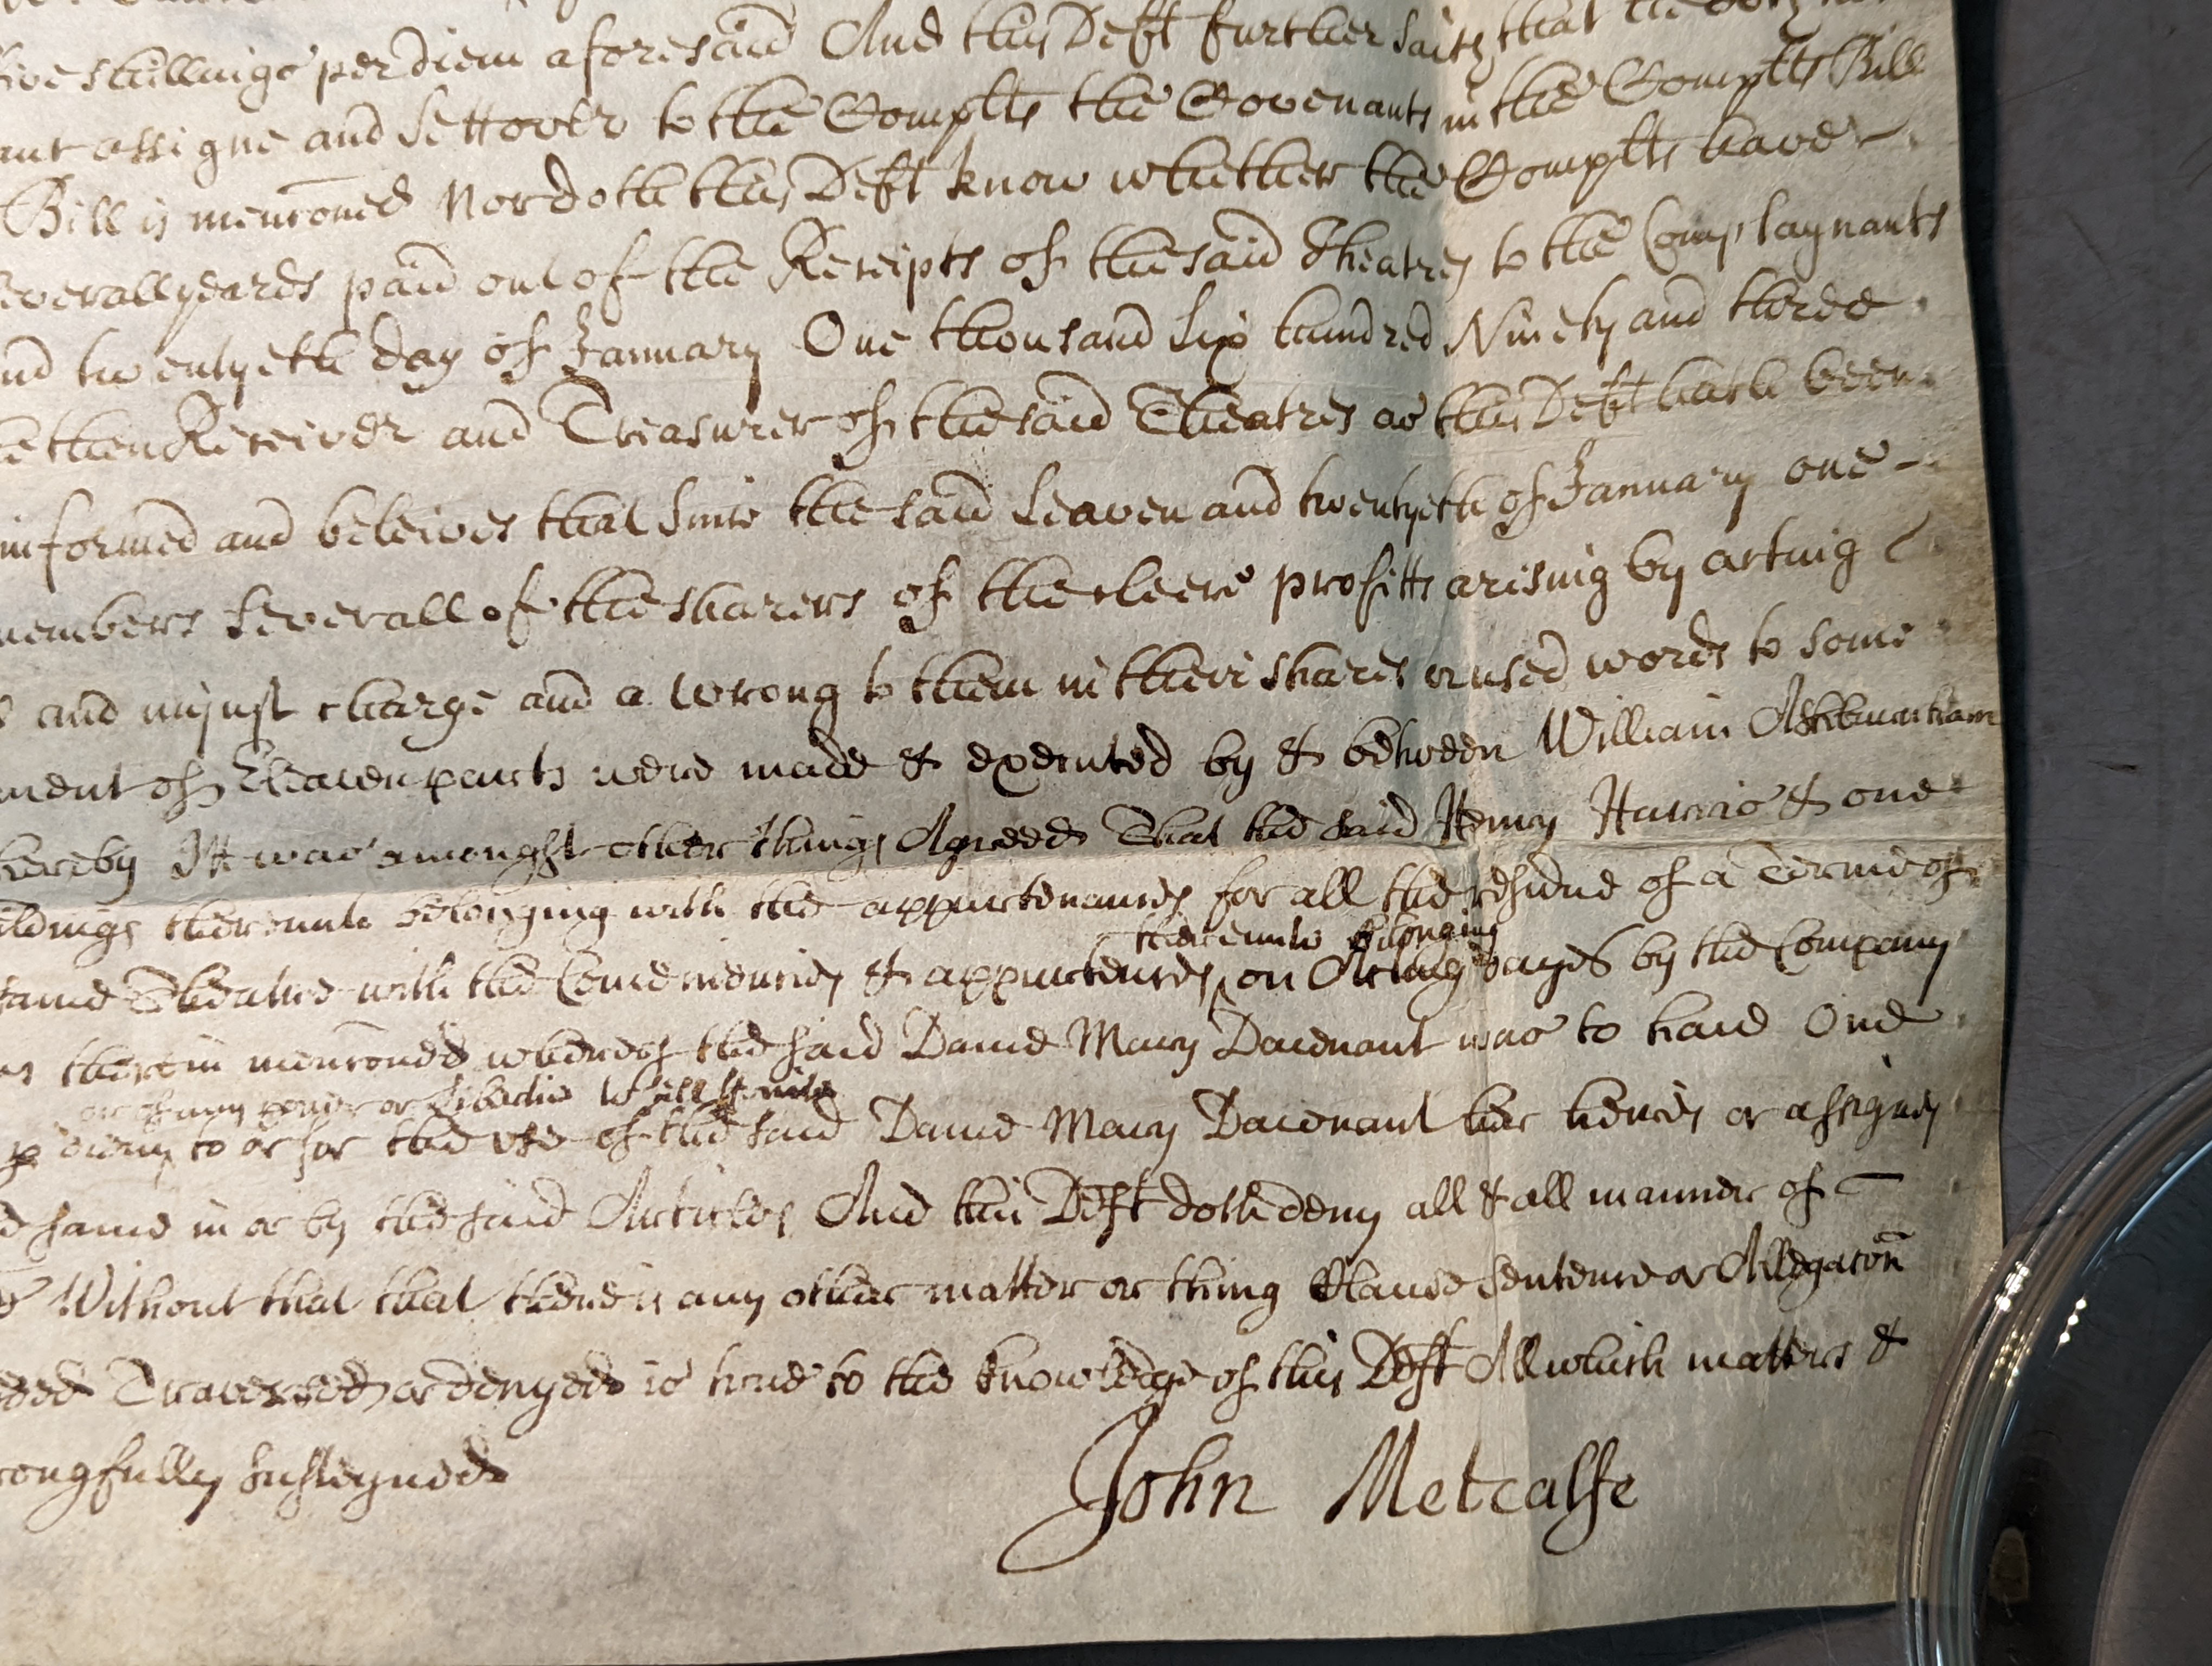 five shillings per diem aforesaid And this Deft further saith that he doth
assigne and sett over to the Complts the Covenants in the Complts Bill
Bill is menconed Nor doth this Deft know whether the Complts have
severall yeares paid out of the Receipts of the said Theatres to the Complaynants
and twentyeth day of January One thousand Six hundred Ninety and three
then Receiver and Treasurer of the said Theatres as this Deft hath been
informed and beleives that since the said seaven and twentyeth of January one
members severall of the sharers of the cleere profitts arising by acting
and unjust charge and a wrong to them in their shares or used words to some
ment of Eleaven parts were made & executed by & between William Ashburnham
hereby Itt was amongst other things Agreed That the said Henry Harris & one
ildings thereunto belonging with the appurtenances for all the residue of a Terme of
thereunto belonging
same Theatre with the Conveniencies & appurtences on Acting dayes by the Company
therein menconed whereof the said Dame Mary Davenant was to have One
or of any power or Libertie
p diem to or for the use of the said Dame Mary Davenant her heires or assignes
same in or by the said Articles And this Deft doth deny all & all manner of
Without that that there is any other matter or thing Clause Sentence or Allegacon
Traversed or denyed is true to the knowledge of this Deft All which matters &
rongfully susteyned
John Metcalfe